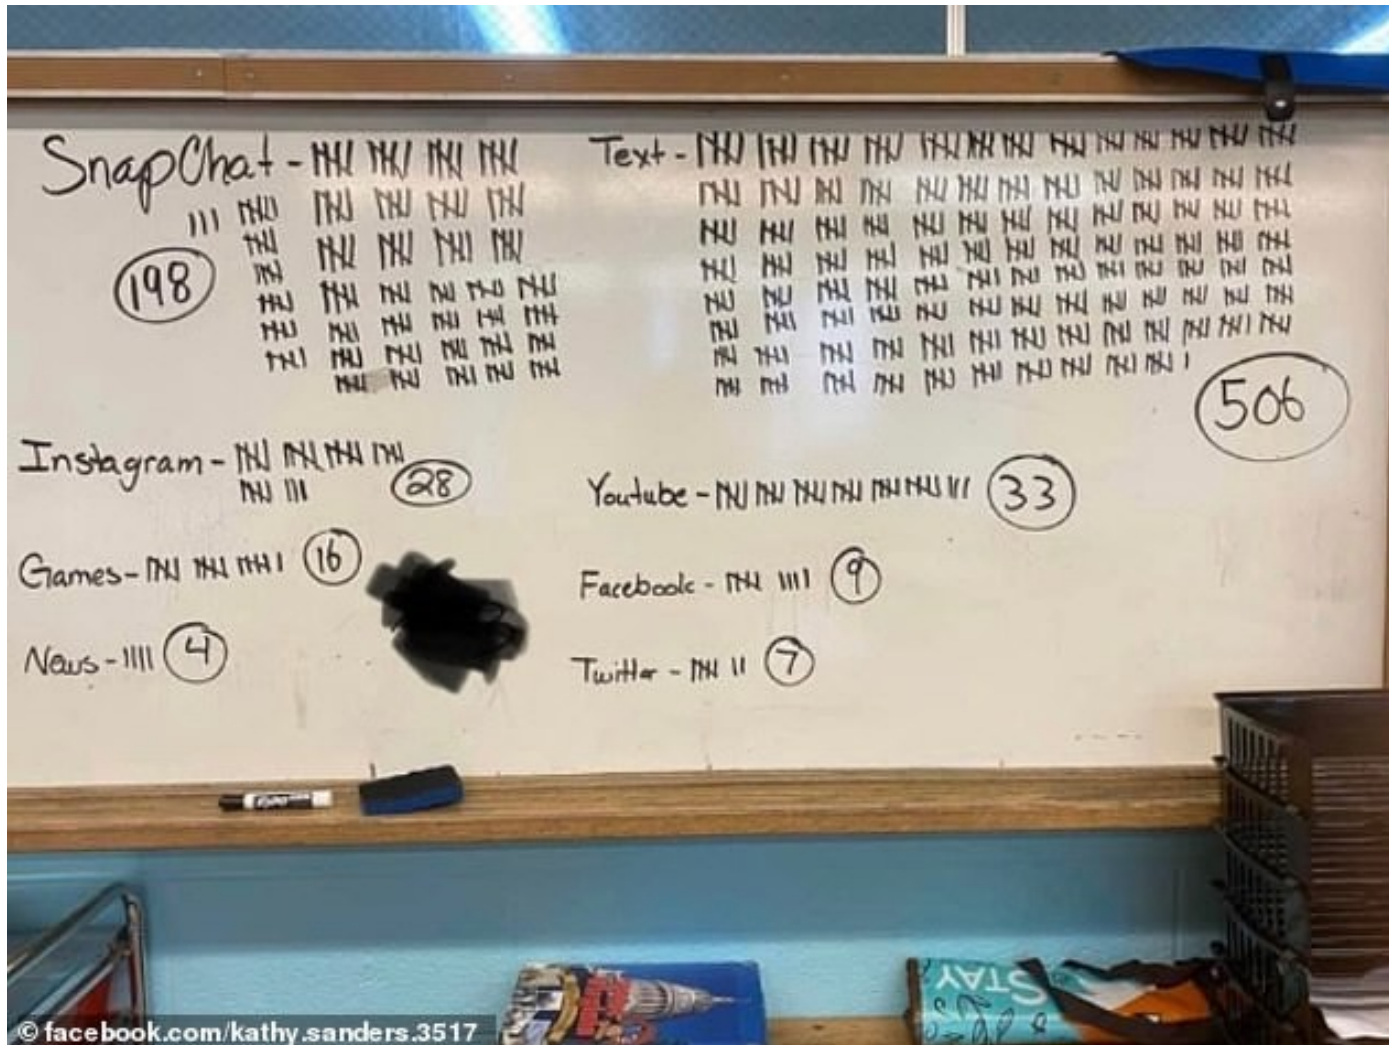 SnapChat -
198
Text -
506
Instagram -
28
Youtube -
33
Games -
16
Facebook -
9
News -
4
Twitter -
7
EXPO
STAY
© facebook.com/kathy.sanders.3517